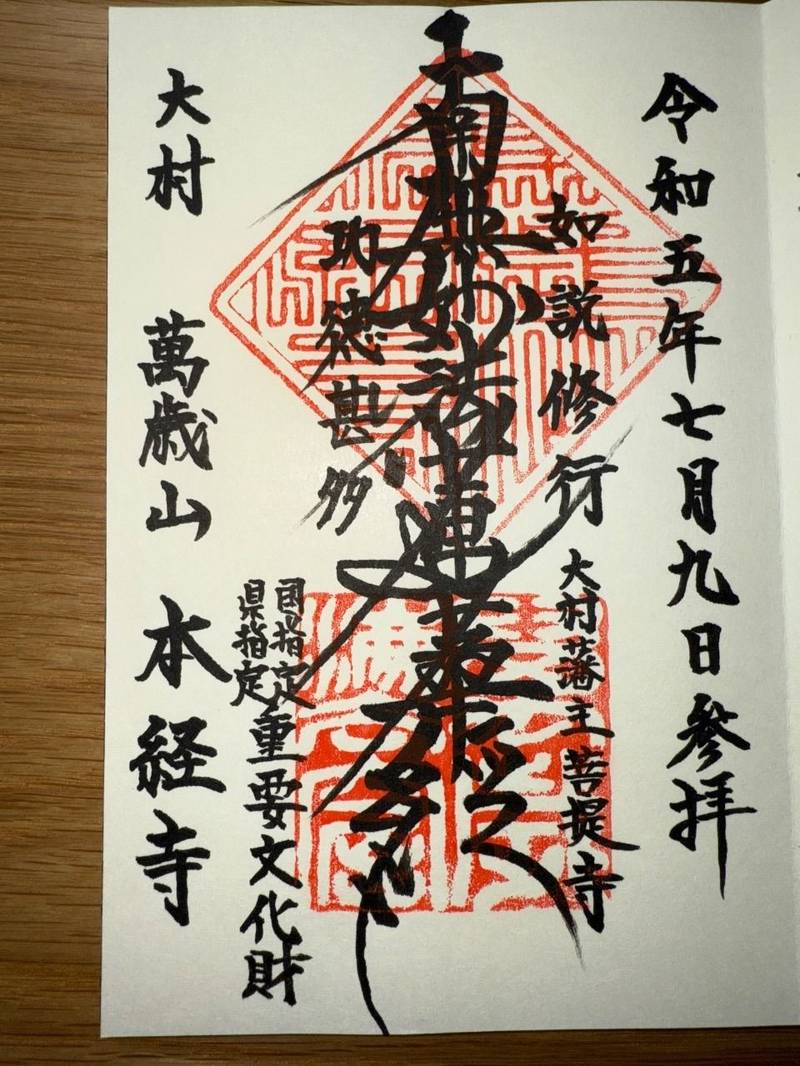 令和五年七月九日参拝
如説修行
大村藩主菩提寺
南無妙法蓮華経
功徳甚多
国指定
県指定
重要文化財
大村 萬歳山 本経寺